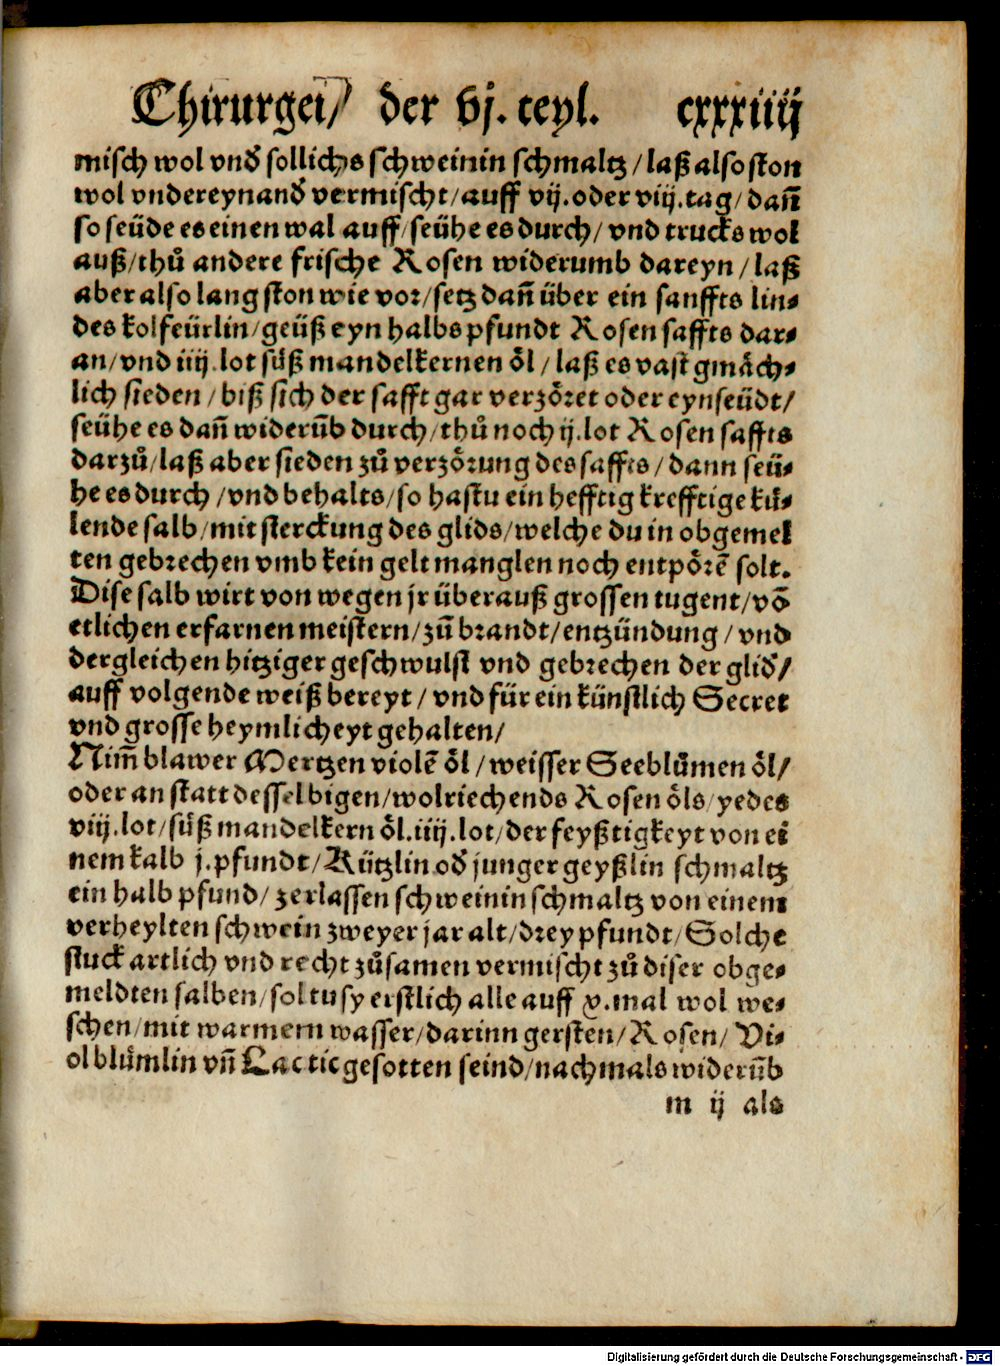 Chirurgei/ der vj. teyl. cxxxiiij
misch wol vnd sollichs schweinin schmaltz/laß also ston
wol vndereynand vermischt/auff vij.oder viij.tag/dañ
so seüde es einen wal auff/seühe es durch/vnd trucks wol
auß/thů andere frische Rosen widerumb dareyn/laß
aber also lang ston wie vor/setz dañ über ein sanffts lin-
des kolfeürlin/geüß eyn halbs pfundt Rosen saffts dar-
an/vnd iiij.lot süß mandelkernen öl/laß es vast gmäch-
lich sieden/biß sich der safft gar verzöret oder eynseüdt/
seühe es dañ widerūb durch/thů noch ij.lot Rosen saffts
darzů/laß aber sieden zů verzörung des saffts/dann seü-
he es durch/vnd behalts/so hastu ein hefftig krefftige kü-
lende salb/mit sterckung des glids/welche du in obgemel
ten gebrechen vmb kein gelt manglen noch entpörē solt.
Dise salb wirt von wegen jr überauß grossen tugent/vō
etlichen erfarnen meistern/zū brandt/entzündung/vnd
dergleichen hitziger geschwulst vnd gebrechen der glid/
auff volgende weiß bereyt/vnd für ein künstlich Secret
vnd grosse heymlicheyt gehalten/
Nim̄ blawer Mertzen violē öl/weisser Seeblůmen öl/
oder an statt desselbigen/wolriechends Rosen öls/yedes
viij.lot/süß mandelkern öl.iiij.lot/der feyßtigkeyt von ei
nem kalb j.pfundt/Kützlin od junger geyßlin schmaltz
ein halb pfund/zerlassen schweinin schmaltz von einem
verheylten schwein zweyer jar alt/drey pfundt/Solche
stuck artlich vnd recht zůsamen vermischt zů diser obge-
meldten salben/soltu sy erstlich alle auff v.mal wol we-
schen/mit warmem wasser/darinn gersten/Rosen/Vi-
ol blümlin vñ Lactic gesotten seind/nachmals widerūb
m ij als
Digitalisierung gefördert durch die Deutsche Forschungsgemeinschaft - DFG